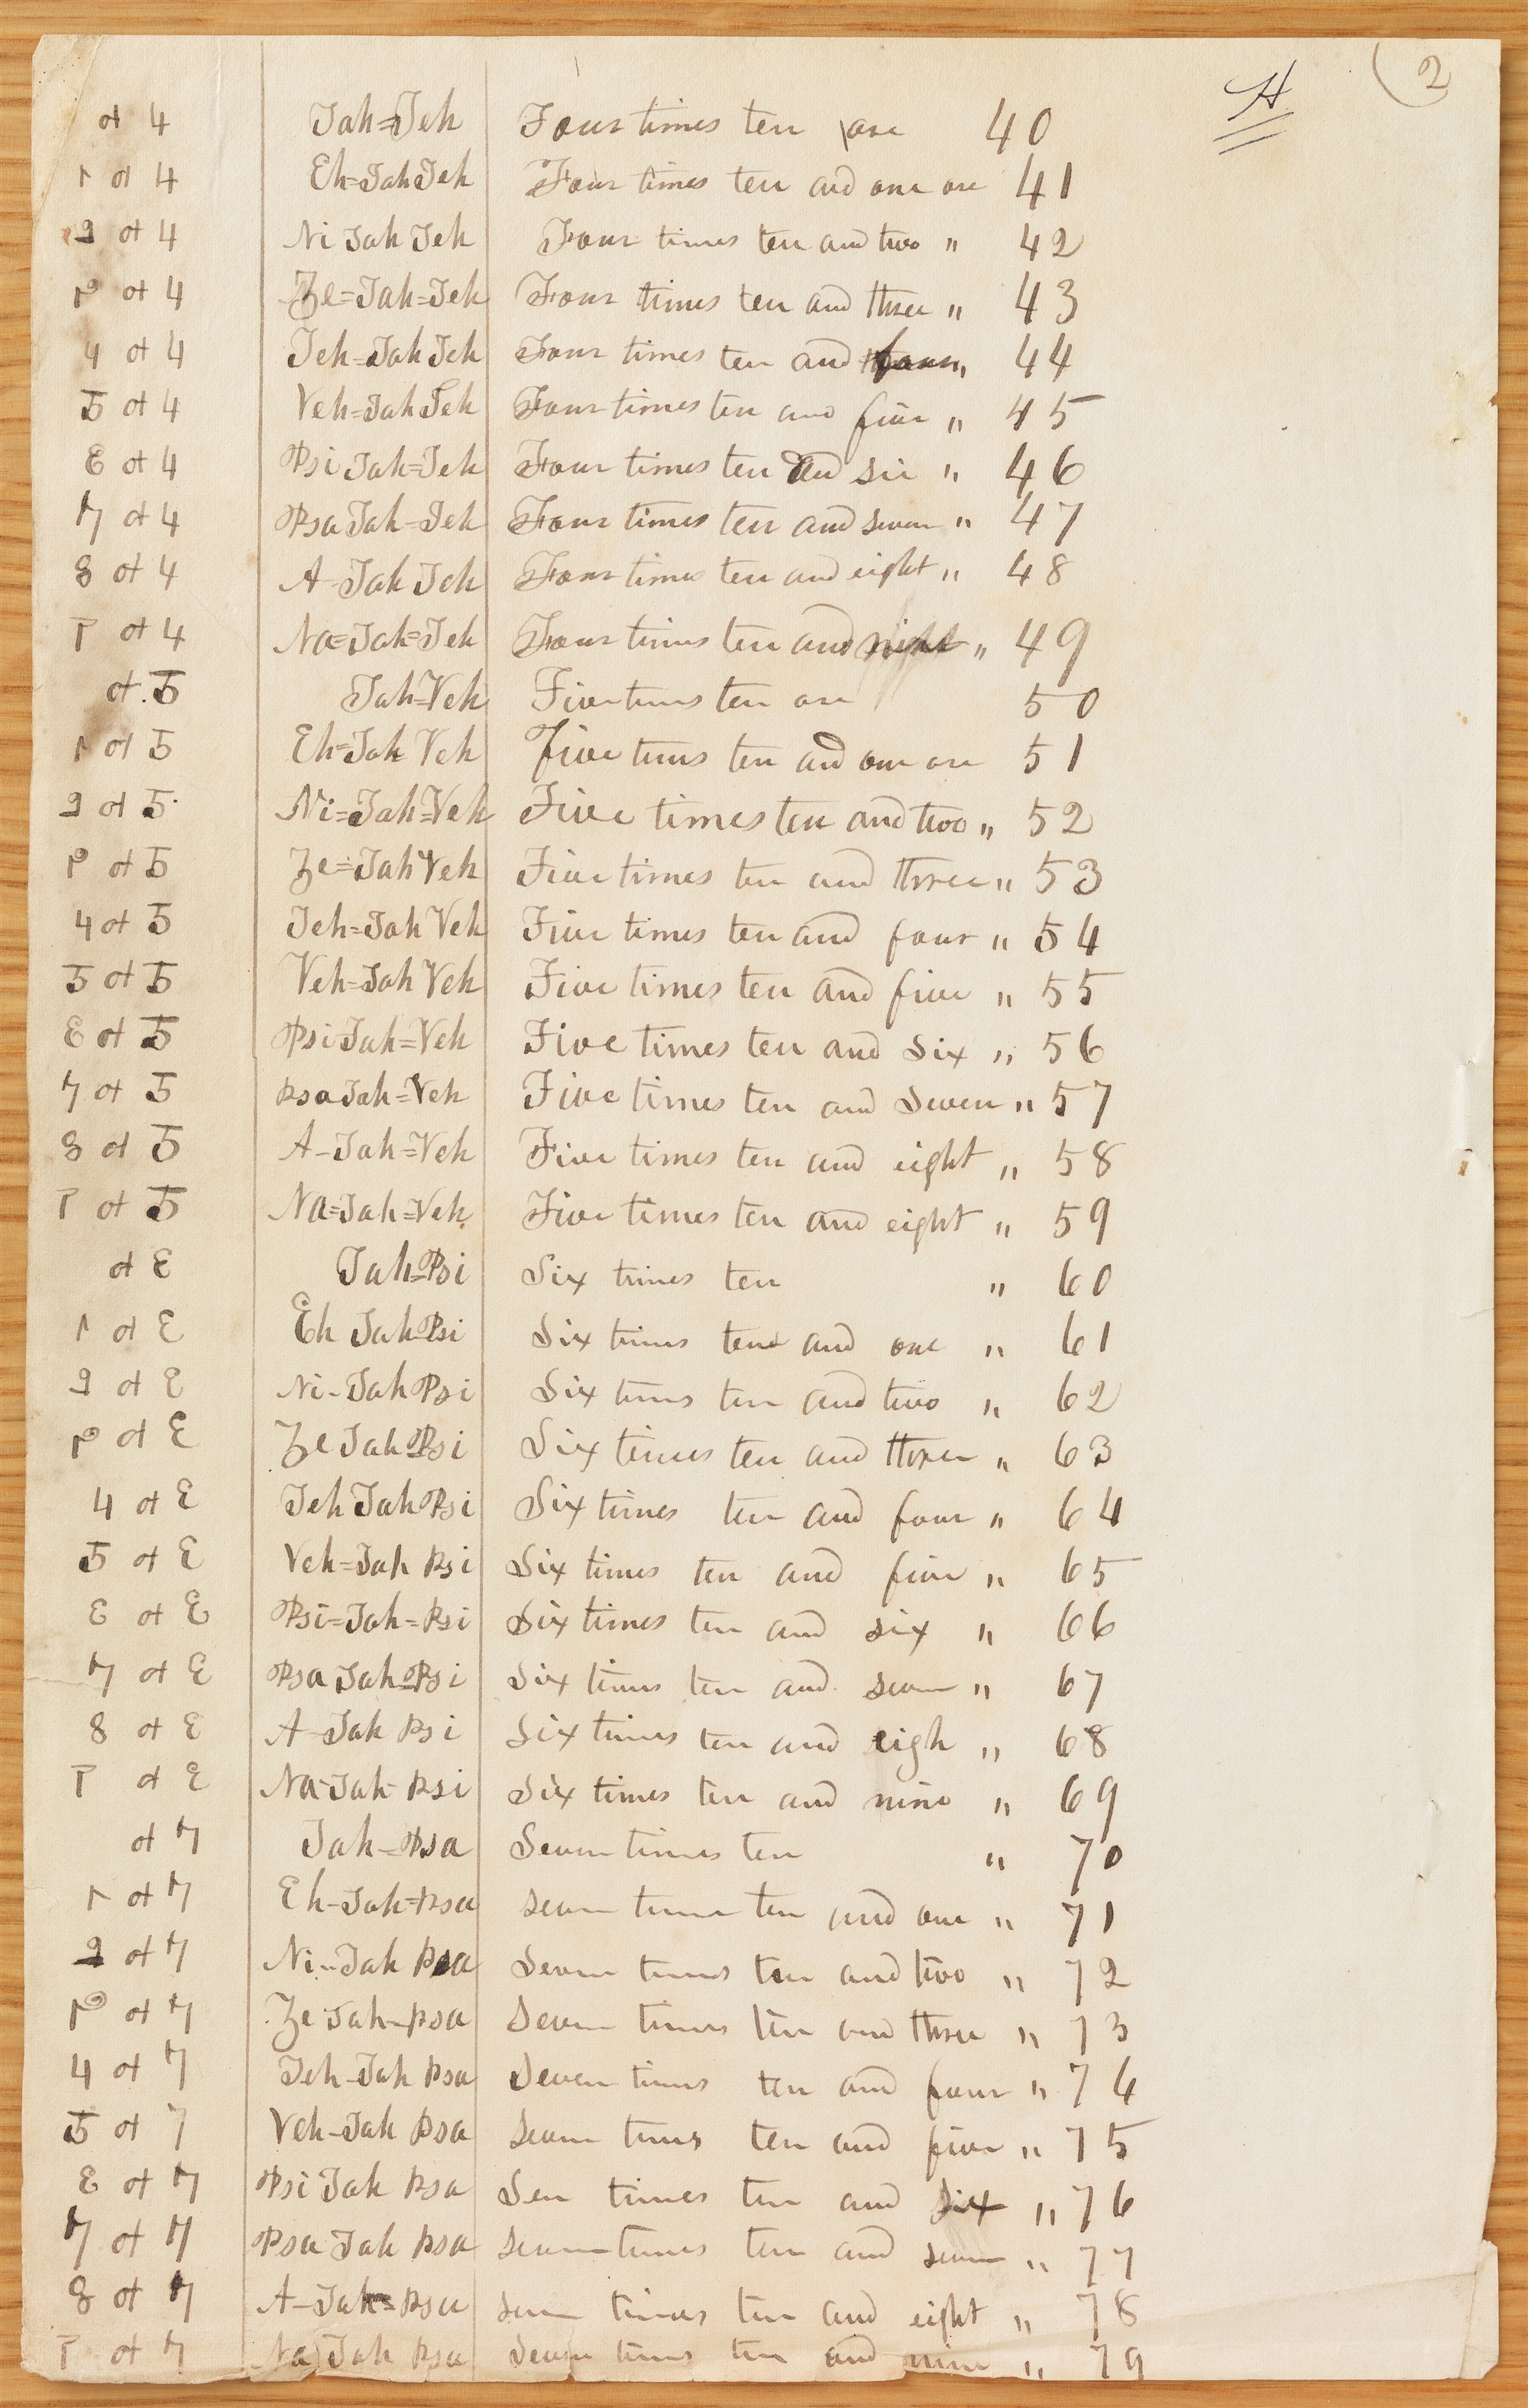 H 2
ol 4 Jah=Jeh Four times ten are 40
1 ol 4 Eh=Jah Jeh Four times ten and one are 41
2 ol 4 Ni Jah Jeh Four times ten and two " 42
ol 4 Ze=Jah=Jeh Four times ten and three " 43
4 ol 4 Jeh=Jah Jeh Four times ten and four " 44
5 ol 4 Veh=Jah Jeh Four times ten and five " 45
Ɛ ol 4 Psi Jah=Jeh Four times ten and six " 46
7 ol 4 Psa Jah=Jeh Four times ten and seven " 47
8 ol 4 A-Jah Jeh Four times ten and eight " 48
ol 4 Na=Jah=Jeh Four times ten and " 49
ol 5 Jah=Veh Five times ten are 50
1 ol 5 Eh=Jah Veh Five times ten and one are 51
2 ol 5 Ni=Jah=Veh Five times ten and two " 52
ol 5 Ze=Jah Veh Five times ten and three " 53
4 ol 5 Jeh=Jah Veh Five times ten and four " 54
5 ol 5 Veh=Jah Veh Five times ten and five " 55
Ɛ ol 5 Psi Jah=Veh Five times ten and Six " 56
7 ol 5 Psa Jah=Veh Five times ten and Seven " 57
8 ol 5 A-Jah=Veh Five times ten and eight " 58
ol 5 Na=Jah=Veh Five times ten and eight " 59
ol Ɛ Jah=Psi Six times ten " 60
1 ol Ɛ Eh Jah=Psi Six times ten and one " 61
2 ol Ɛ Ni-Jah Psi Six times ten and two " 62
ol Ɛ Ze Jah=Psi Six times ten and three " 63
4 ol Ɛ Jeh Jah Psi Six times ten and four " 64
5 ol Ɛ Veh=Jah Psi Six times ten and five " 65
Ɛ ol Ɛ Psi=Jah=Psi Six times ten and six " 66
7 ol Ɛ Psa Jah=Psi Six times ten and seven " 67
8 ol Ɛ A-Jah Psi Six times ten and eigh " 68
ol Ɛ Na-Jah-Psi Six times ten and nine " 69
ol 7 Jah=Psa Seven times ten " 70
1 ol 7 Eh-Jah=Psa seven times ten and one " 71
2 ol 7 Ni-Jah Psa Seven times ten and two " 72
ol 7 Ze Jah-Psa Seven times ten and three " 73
4 ol 7 Jeh-Jah Psa Seven times ten and four " 74
5 ol 7 Veh-Jah Psa seven times ten and five " 75
Ɛ ol 7 Psi Jah Psa Sen times ten and six " 76
7 ol 7 Psa Jah Psa seven times ten and seven " 77
8 ol 7 A-Jah=Psa seven times ten and eight " 78
ol 7 Na Jah Psa Seven times ten and nine " 79